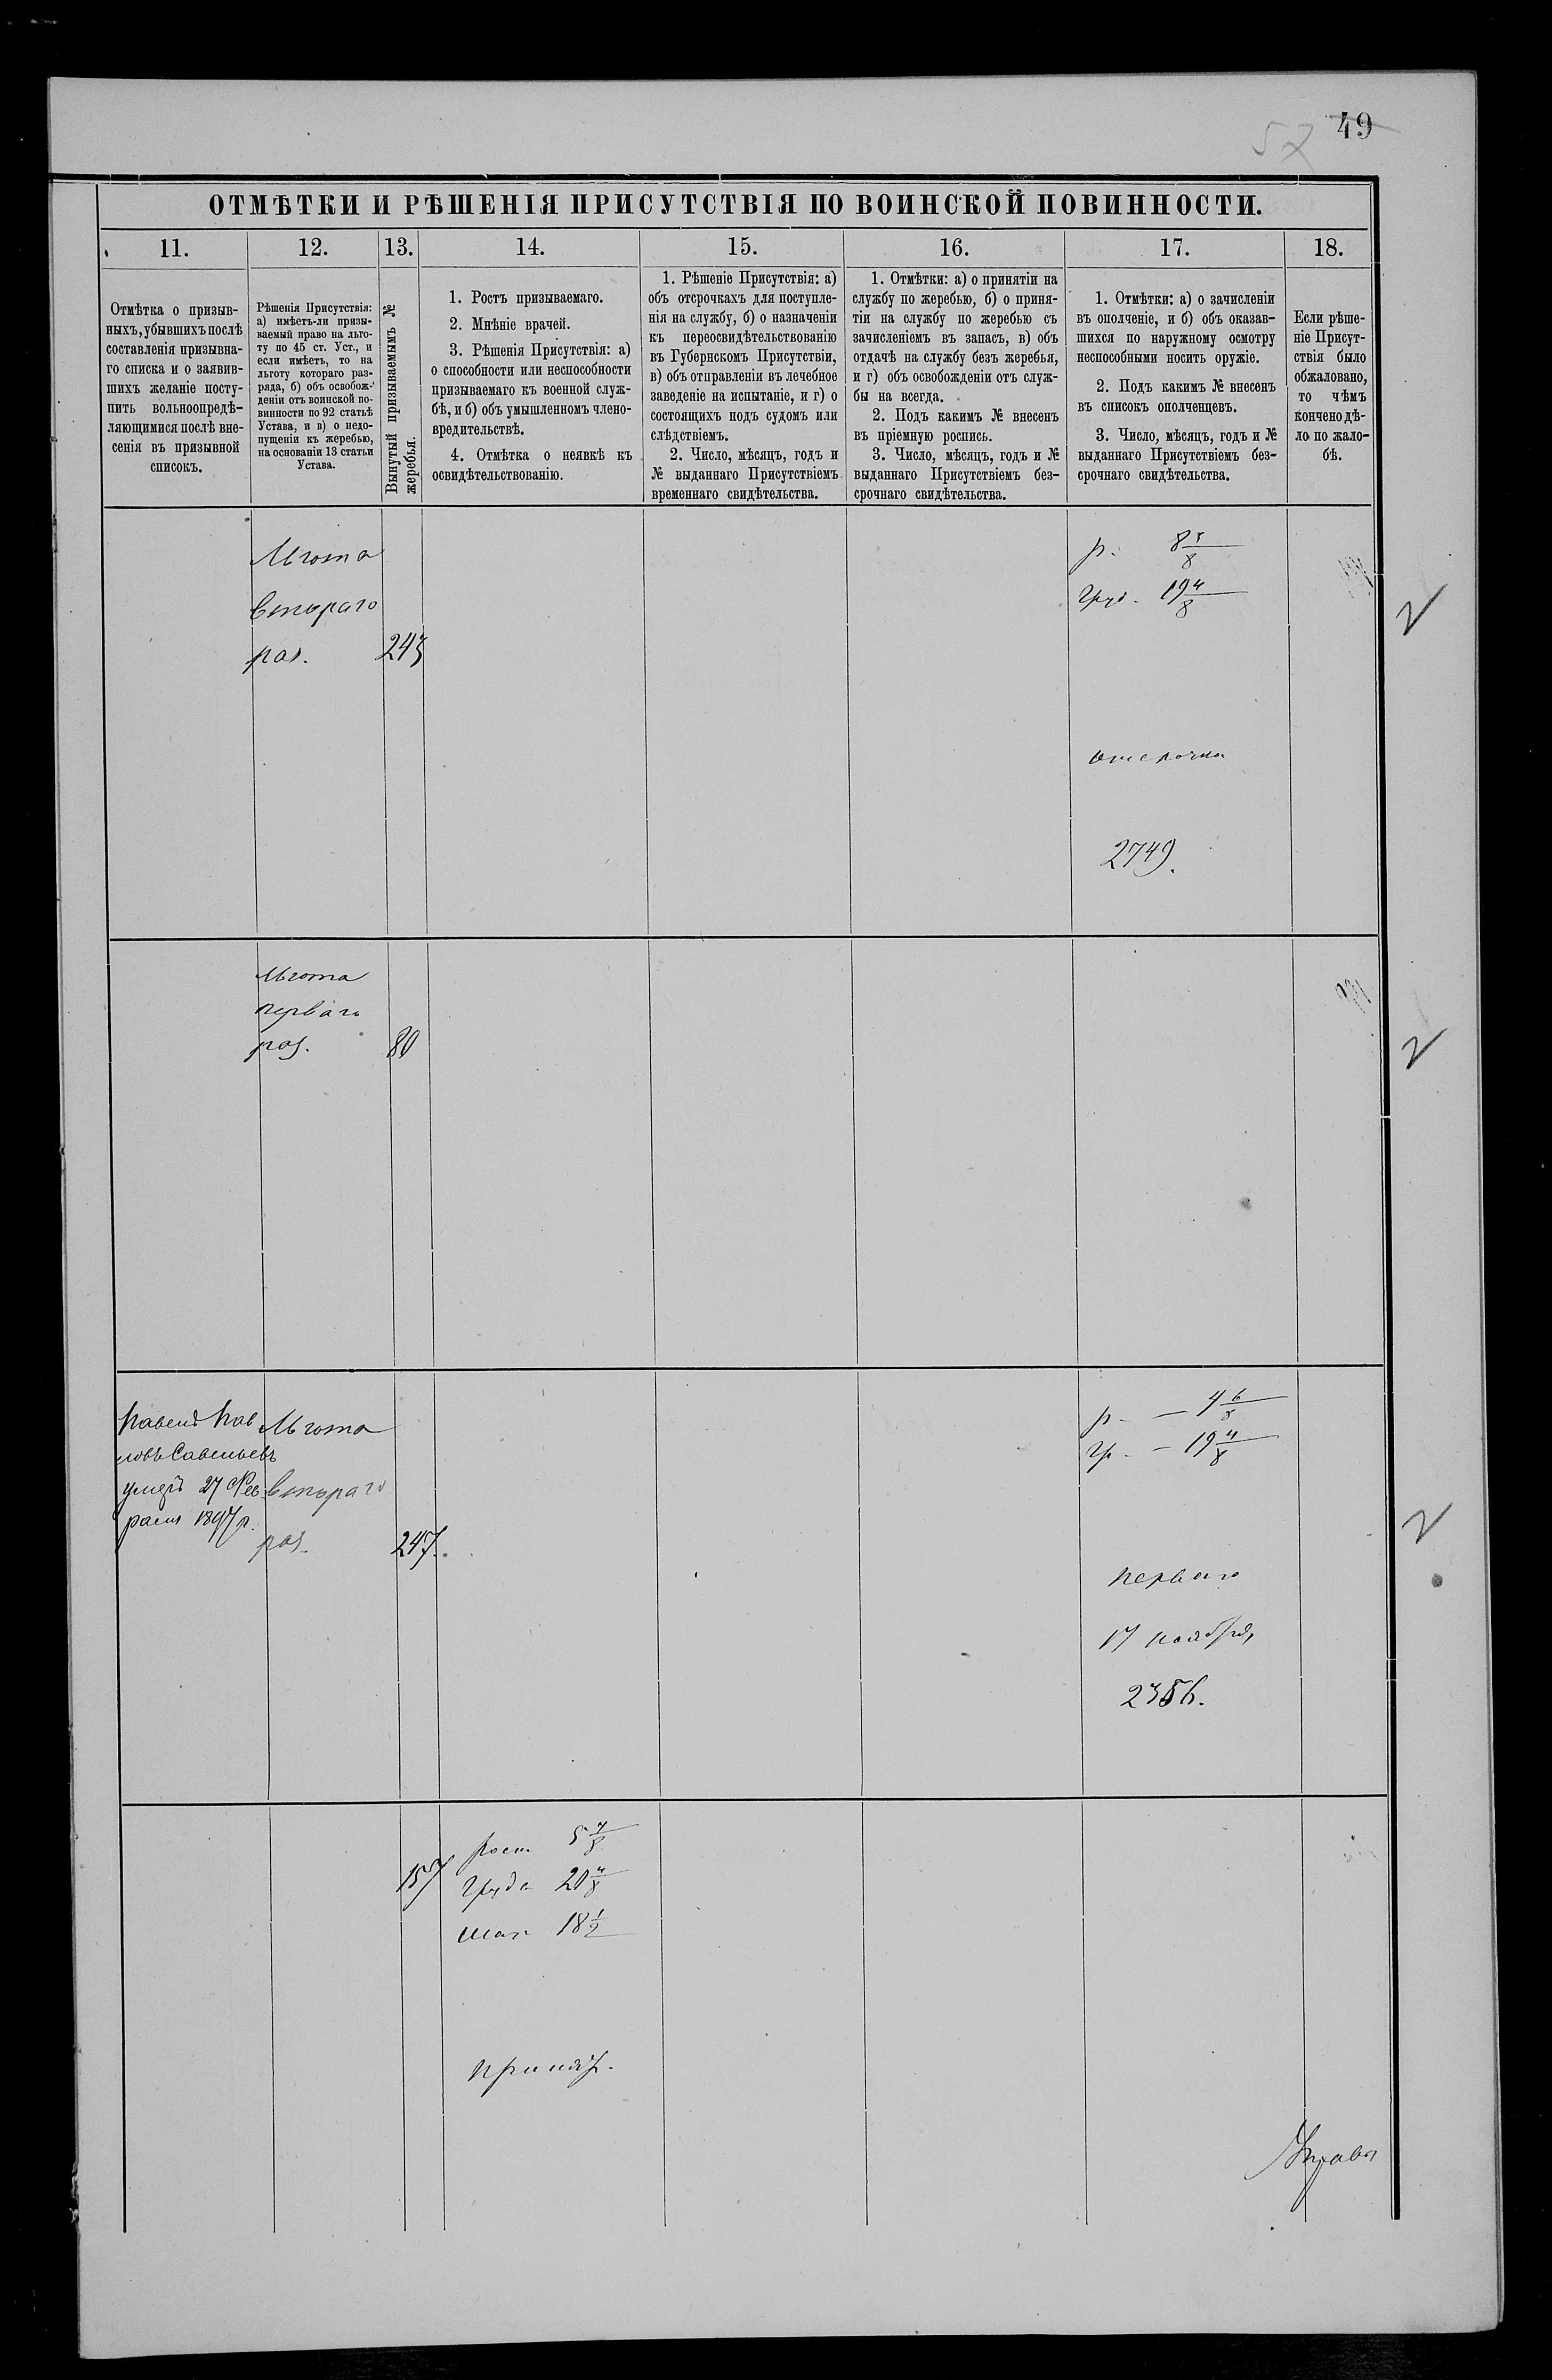 49
57
ОТМѢТКИ И РѢШЕНІЯ ПРИСУТСТВІЯ ПО ВОИНСКОЙ ПОВИННОСТИ.
11.
Отмѣтка о призыв-
ныхъ, убывшихъ послѣ
составленія призывна-
го списка и о заявив-
шихъ желаніе посту-
пить вольноопредѣ-
ляющимися послѣ вне-
сенія въ призывной
списокъ.
12.
Рѣшенія Присутствія:
а) имѣетъ-ли призы-
ваемый право на льго-
ту по 45 ст. Уст., и
если имѣетъ, то на
льготу котораго раз-
ряда, б) объ освобож-
деніи отъ воинской по-
винности по 92 статьѣ
Устава, и в) о недо-
пущеніи къ жеребью,
на основаніи 13 статьи
Устава.
13.
Вынутый призываемымъ №
жеребья.
14.
1. Ростъ призываемаго.
2. Мнѣніе врачей.
3. Рѣшенія Присутствія: а)
о способности или неспособности
призываемаго къ военной служ-
бѣ, и б) объ умышленномъ члено-
вредительствѣ.
4. Отмѣтка о неявкѣ къ
освидѣтельствованію.
15.
1. Рѣшеніе Присутствія: а)
объ отсрочкахъ для поступле-
нія на службу, б) о назначеніи
къ переосвидѣтельствованію
въ Губернскомъ Присутствіи,
в) объ отправленіи въ лечебное
заведеніе на испытаніе, и г) о
состоящихъ подъ судомъ или
слѣдствіемъ.
2. Число, мѣсяцъ, годъ и
№ выданнаго Присутствіемъ
временнаго свидѣтельства.
16.
1. Отмѣтки: а) о принятіи на
службу по жеребью, б) о приня-
тіи на службу по жеребью съ
зачисленіемъ въ запасъ, в) объ
отдачѣ на службу безъ жеребья,
и г) объ освобожденіи отъ служ-
бы на всегда.
2. Подъ какимъ № внесенъ
въ пріемную роспись.
3. Число, мѣсяцъ, годъ и №
выданнаго Присутствіемъ без-
срочнаго свидѣтельства.
17.
1. Отмѣтки: а) о зачисленіи
въ ополченіе, и б) объ оказав-
шихся по наружному осмотру
неспособными носить оружіе.
2. Подъ какимъ № внесенъ
въ списокъ ополченцевъ.
3. Число, мѣсяцъ, годъ и №
выданнаго Присутствіемъ без-
срочнаго свидѣтельства.
18.
Если рѣше-
ніе Присут-
ствія было
обжаловано,
то чѣмъ
кончено дѣ-
ло по жало-
бѣ.
Льгота
втораго
раз.
243
р.
Груд. 19 4/8
2749.
2
Льгота
перваго
раз.
80
2
Павелъ Пав
ловъ Савельевъ
умеръ 27 Фев
раля 1897 г.
Льгота
втораго
раз.
247.
р. — 4 6/8
гр. — 19 4/8
перваго
17 ноября
2356.
2
157
рост
груд 20 4/8
18 1/2